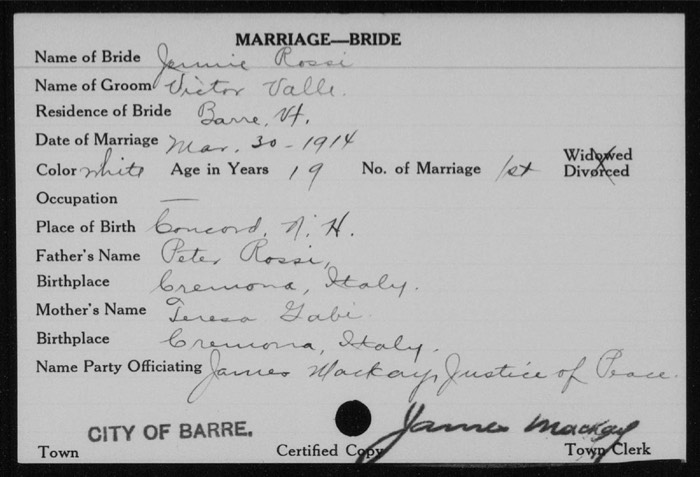 MARRIAGE—BRIDE
Name of Bride Jennie Rossi
Name of Groom Victor Valle.
Residence of Bride Barre, Vt.
Date of Marriage Mar. 30 - 1914
Color white Age in Years 19 No. of Marriage 1st Widowed
Divorced
Occupation —
Place of Birth Concord, N. H.
Father's Name Peter Rossi,
Birthplace Cremona, Italy.
Mother's Name Teresa Gabi
Birthplace Cremona, Italy.
Name Party Officiating James Mackay, Justice of Peace.
CITY OF BARRE. James Mackay
Town Certified Copy Town Clerk